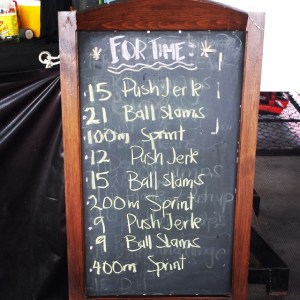 FOR TIME:
15 Push Jerk
21 Ball Slams
100m Sprint
12 Push Jerk
15 Ball Slams
200m Sprint
9 Push Jerk
9 Ball Slams
400m Sprint